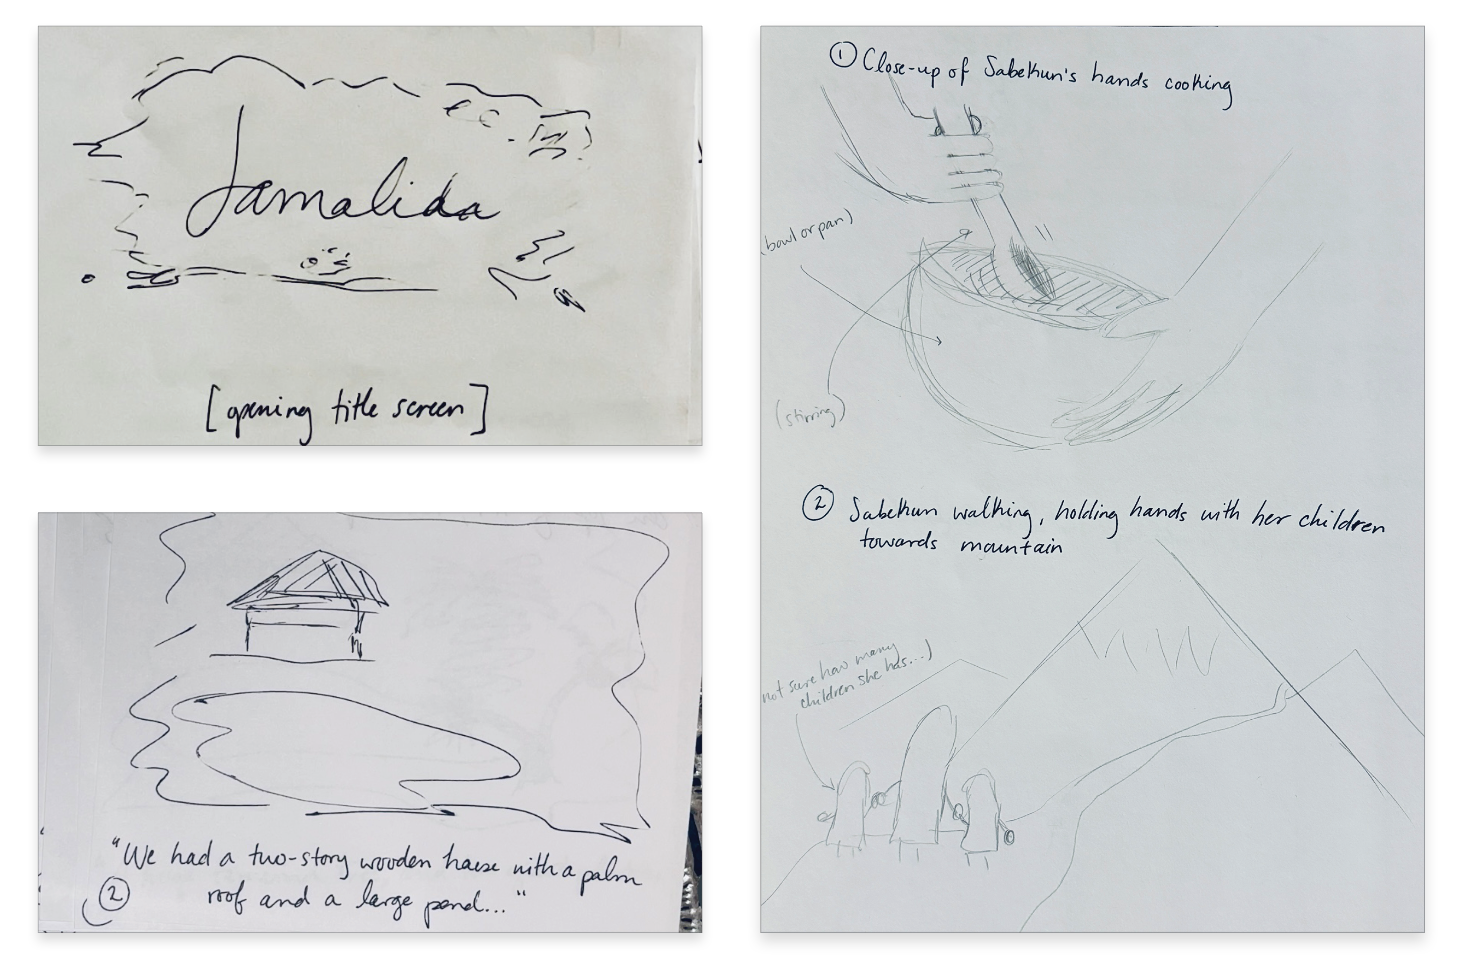 Jamalida
[opening title screen]
"We had a two-story wooden house with a palm
② roof and a large pond..."
① Close-up of Sabekun's hands cooking
(bowl or pan)
(stirring)
② Sabekun walking, holding hands with her children
towards mountain
not sure how many
children she has...)